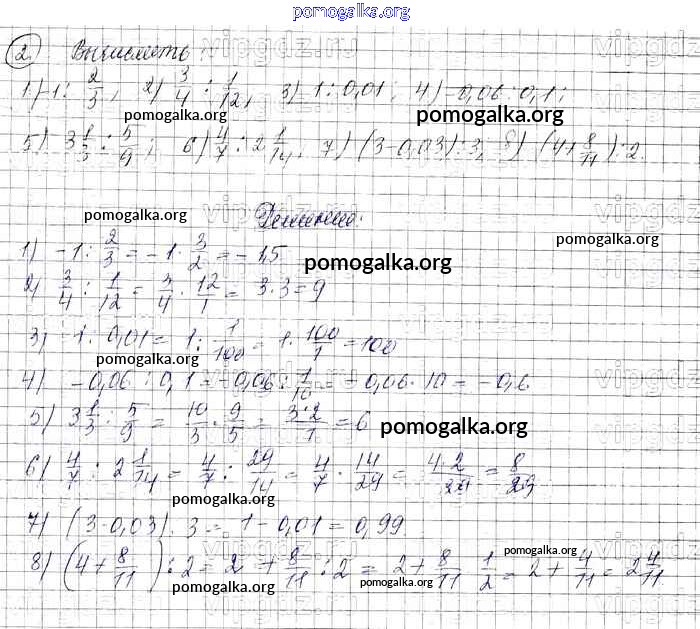 pomogalka.org
2. Вычислить:
1) -1 : 2/3, 2) 3/4 : 1/12, 3) 1 : 0,01; 4) -0,06 : 0,1;
pomogalka.org
5) 3 1/3 : 5/9; 6) 4/7 : 2 1/14, 7) (3-0,03) : 3, 8) (4+8/11) : 2.
pomogalka.org
Решение:
pomogalka.org
1) -1 : 2/3 = -1 · 3/2 = -1,5
pomogalka.org
2) 3/4 : 1/12 = 3/4 · 12/1 = 3·3 = 9
3) 1 : 0,01 = 1 : 1/100 = 1 · 100/1 = 100
pomogalka.org
4) -0,06 : 0,1 = -0,06 : 1/10 = -0,06 · 10 = -0,6
5) 3 1/3 : 5/9 = 10/3 · 9/5 = 3·2/1 = 6
pomogalka.org
6) 4/7 : 2 1/14 = 4/7 : 29/14 = 4/7 · 14/29 = 4·2/29 = 8/29
pomogalka.org
7) (3-0,03) : 3 = 1-0,01 = 0,99
pomogalka.org
8) (4+8/11) : 2 = 2 + 8/11 : 2 = 2 + 8/11 · 1/2 = 2 + 4/11 = 2 4/11
pomogalka.org
pomogalka.org